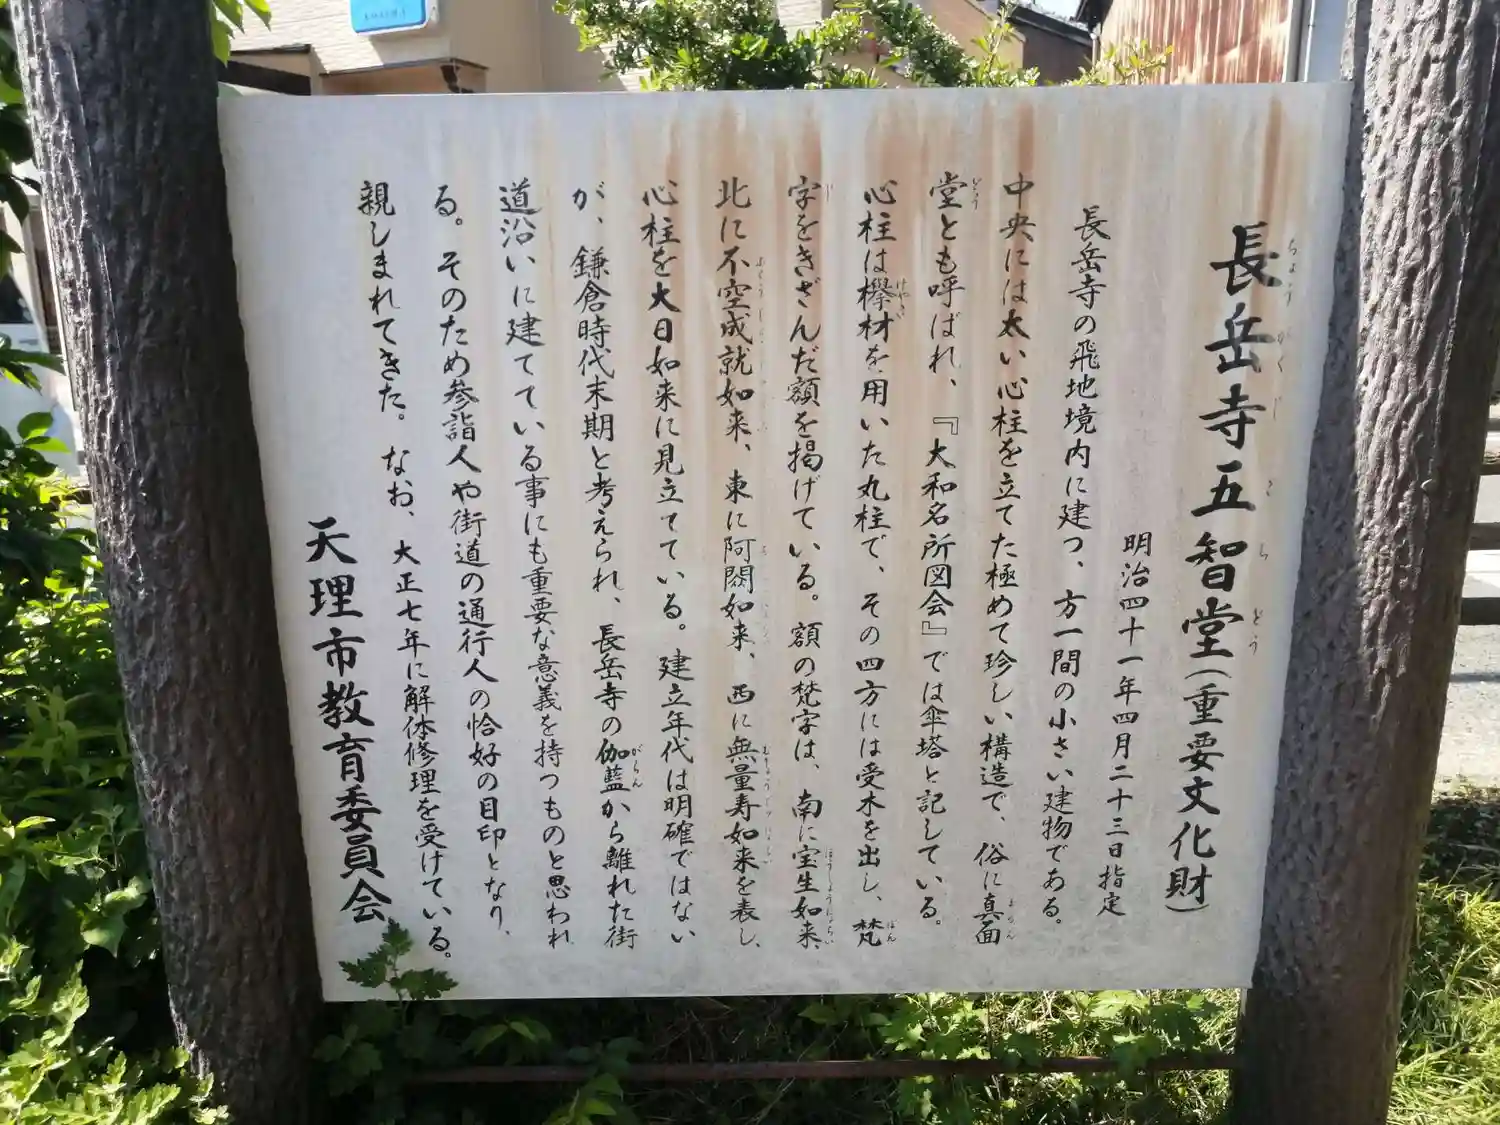 長岳寺五智堂(重要文化財)
ちょうがくじごちどう
明治四十一年四月二十三日指定
長岳寺の飛地境内に建つ、方一間の小さい建物である。
中央には太い心柱を立てた極めて珍しい構造で、俗に真面
堂とも呼ばれ、『大和名所図会』では傘塔と記している。
心柱は欅材を用いた丸柱で、その四方には受木を出し、梵
字をきざんだ額を掲げている。額の梵字は、南に宝生如来、
北に不空成就如来、東に阿閦如来、西に無量寿如来を表し、
心柱を大日如来に見立てている。建立年代は明確ではない
が、鎌倉時代末期と考えられ、長岳寺の伽藍から離れた街
道沿いに建てている事にも重要な意義を持つものと思われ
る。そのため参詣人や街道の通行人の恰好の目印となり、
親しまれてきた。なお、大正七年に解体修理を受けている。
天理市教育委員会